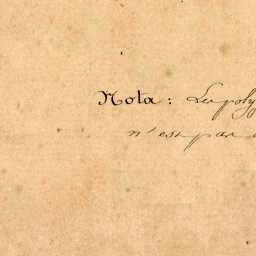 Nota : Le poly
n'est pas